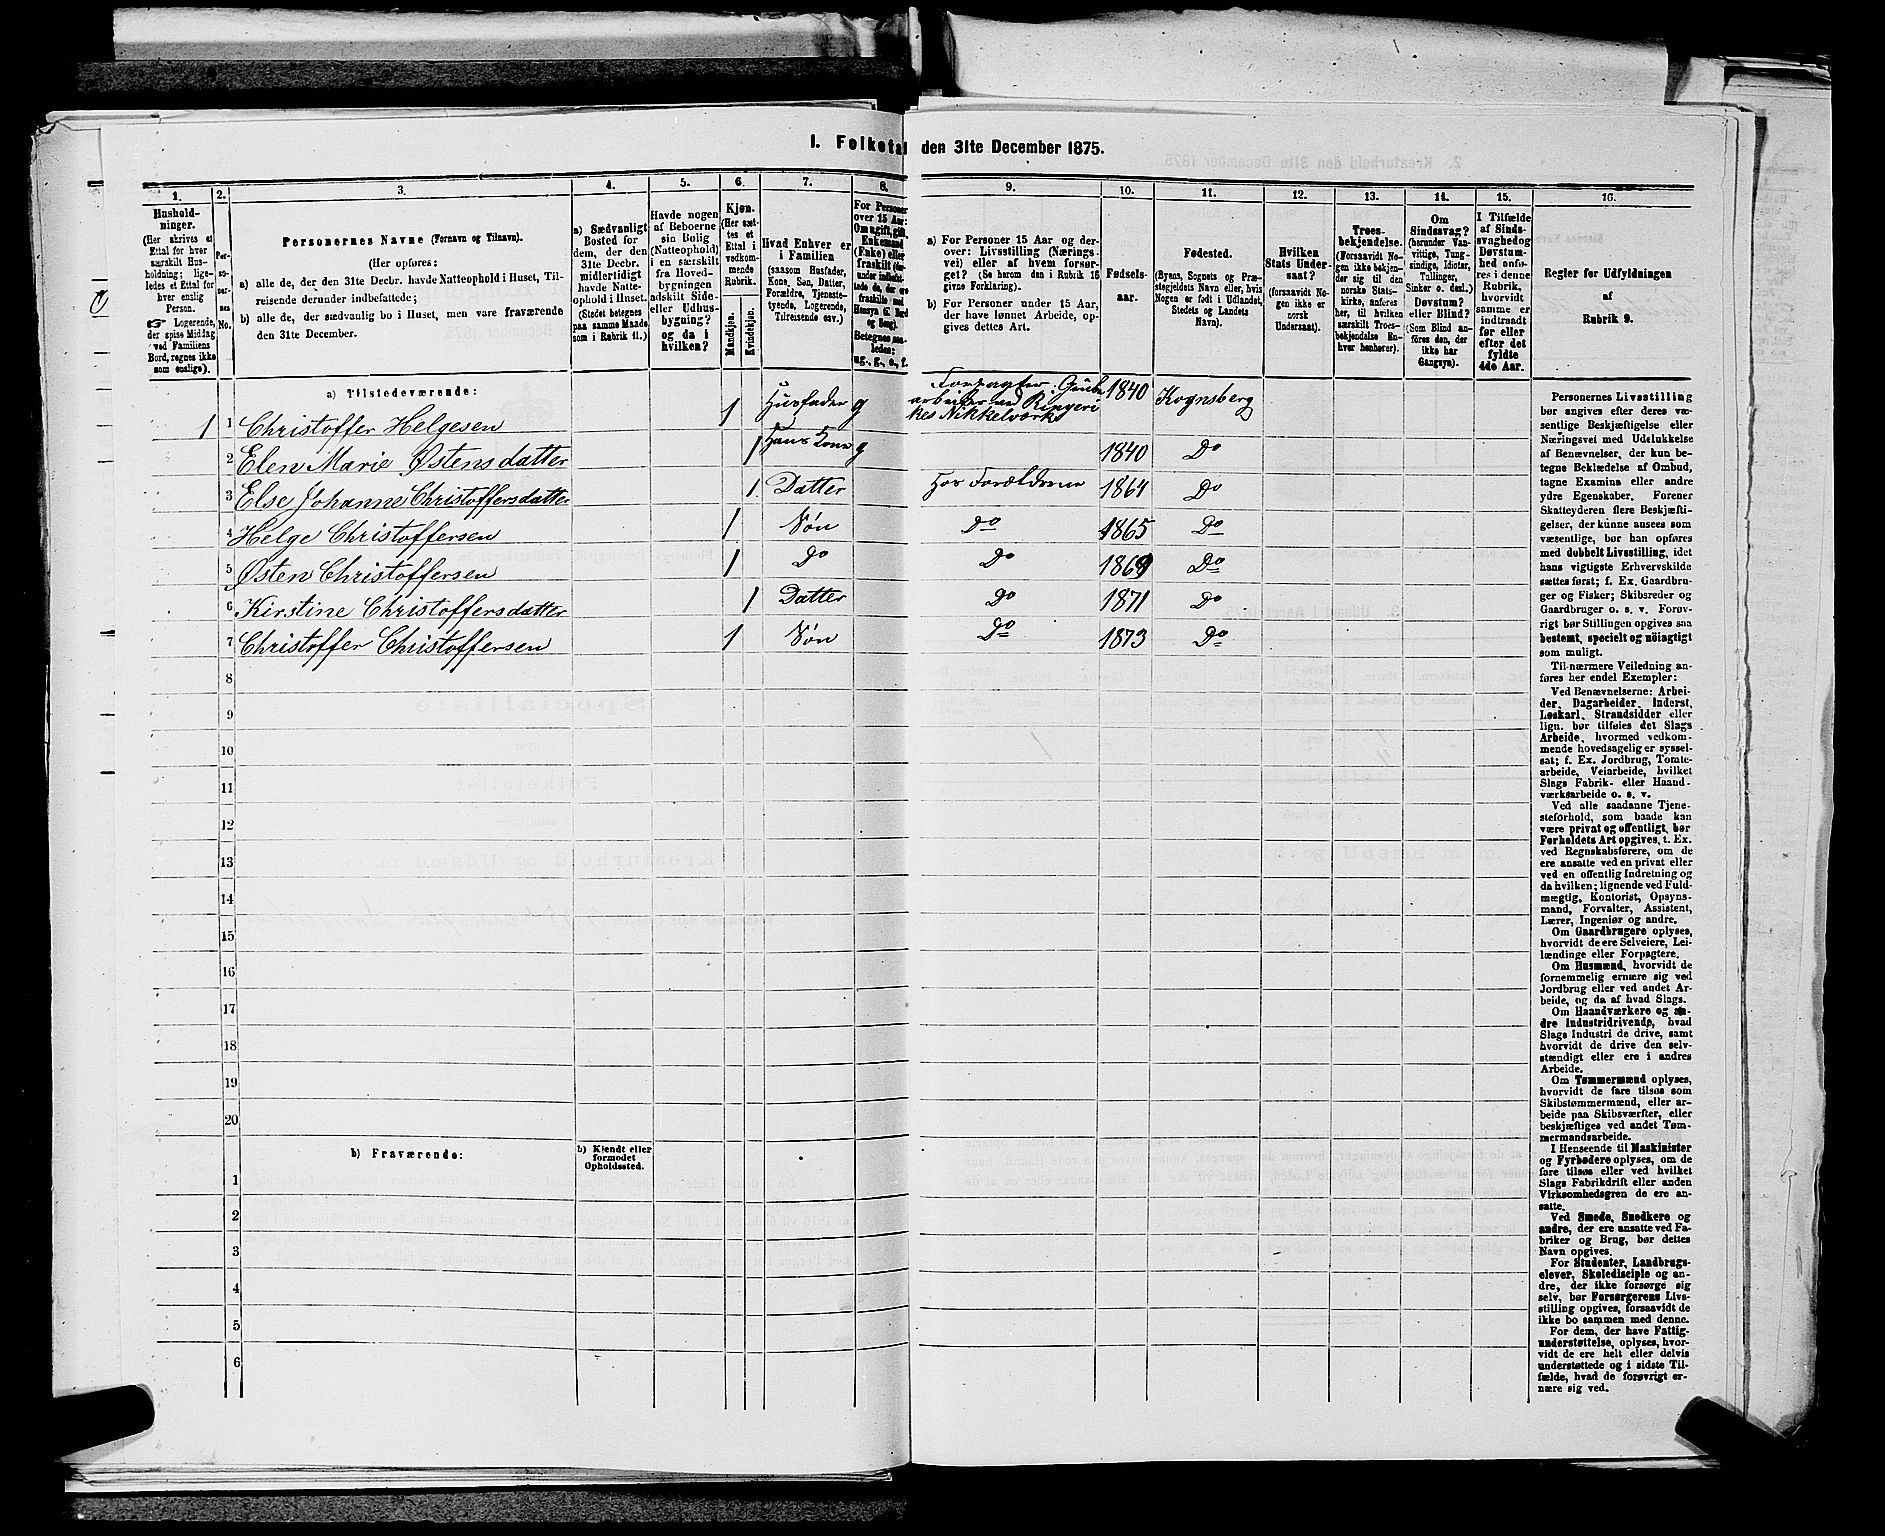 1. Folketal den 31te December 1875.
1.
2.
3.
4.
5.
6.
7.
8.
9.
10.
11.
12.
13.
14.
15.
16.
Hushold-
ninger.
(Her skrives et
Ettal for hver
særskilt Hus-
holdning; lige-
ledes et Ettal for
hver enslig
Person.
☞ Logerende,
der spise Middag
ved Familiens
Bord, regnes ikke
som enslige).
Per-
so-
ner-
nes
No.
Personernes Navne (Fornavn og Tilnavn).
(Her opføres:
a) alle de, der den 31te Decbr. havde Natteophold i Huset, Til-
reisende derunder indbefattede;
b) alle de, der sædvanlig bo i Huset, men vare fraværende
den 31te December.
a) Sædvanligt
Bosted for
dem, der den
31te Decbr.
midlertidigt
havde Natte-
ophold i Huset.
(Stedet betegnes
paa samme Maade
som i Rubrik 11.)
Havde nogen
af Beboerne
sin Bolig
(Natteophold)
i en særskilt
fra Hoved-
bygningen
adskilt Side-
eller Udhus-
bygning?
og da i
hvilken?
Kjøn.
(Her sæt-
tes et
Ettal i
vedkom-
mende
Rubrik.
Mandkjøn.
Kvindekjøn.
Hvad Enhver er
i Familien
(saasom Husfader,
Kone, Søn, Datter,
Forældre, Tjeneste-
tyende, Logerende,
Tilreisende osv.)
For Personer
over 15 Aar:
Om ugift, gift,
Enkemand
(Enke) eller
fraskilt
og Seng).
Betegnes saa-
ledes:
ug., g., e., f.
a) For Personer 15 Aar og der-
over: Livsstilling (Nærings-
vei) eller af hvem forsør-
get? (Se herom den i Rubrik 16
givne Forklaring).
b) For Personer under 15 Aar,
der have lønnet Arbeide, op-
gives dettes Art.
Fødsels-
aar.
Fødested.
(Byens, Sognets og Præ-
stegjeldets Navn eller, hvis
Nogen er født i Udlandet,
Stedets og Landets
Navn).
Hvilken
Stats Under-
saat?
(forsaavidt No-
gen ikke er
norsk
Undersaat).
Troes-
bekjendelse.
(Forsaavidt No-
gen ikke bekjen-
der sig til den
norske Stats-
kirke, anføres
her, til hvilken
særskilt Troes-
bekjendelse En-
hver henhører).
Om
Sindssvag?
(herunder Van-
vittige, Tung-
sindige, Idioter,
Tullinger,
Sinker o. desl.)
Døvstum?
eller Blind?
(Som Blind an-
føres den, der
ikke har
Gangsyn).
I Tilfælde
af Sinds-
svaghed og
Døvstum-
hed anfø-
res i denne
Rubrik,
hvorvidt
samme er
indtraadt
før eller
efter det
fyldte
4de Aar.
Regler for Udfyldningen
af
Rubrik 9.
a) Tilstedeværende:
1 1 Christoffer Helgesen 1 Husfader g Forpagter. Grube
arbeider ved Ringeri
kes Nikkelværk 1840 Kognsberg
2 Elen Marie Østensdatter 1 Hans Kone g 1840 Do
3 Else Johanne Christoffersdatter 1 Datter Hos Forældrene 1864 Do
4 Helge Christoffersen 1 Søn Do 1865 Do
5 Østen Christoffersen 1 Do Do 1869 Do
6 Kirstine Christoffersdatter 1 Datter Do 1871 Do
7 Christoffer Christoffersen 1 Søn Do 1873 Do
8
9
10
11
12
13
14
15
16
17
18
19
20
b) Fraværende:
b) Kjendt eller
formodet
Opholdssted.
1
2
3
4
5
6
Personernes Livsstilling
bør angives efter deres væ-
sentlige Beskjæftigelse eller
Næringsvei med Udelukkelse
af Benævnelser, der kun be-
tegne Beklædelse af Ombud,
tagne Examina eller andre
ydre Egenskaber. Forener
Skatteyderen flere Beskjæfti-
gelser, der kunne ansees som
væsentlige, bør han opføres
med dobbelt Livsstilling, idet
hans vigtigste Erhvervskilde
sættes først; f. Ex. Gaardbru-
ger og Fisker; Skibsreder og
Gaardbruger o. s. v. Forøv-
rigt bør Stillingen opgives saa
bestemt, specielt og nöiagtigt
som muligt.
Til nærmere Veiledning an-
føres her endel Exempler:
Ved Benævnelserne: Arbei-
der, Dagarbeider, Inderst,
Løskarl, Strandsidder eller
lign. bør tilføies det Slags
Arbeide, hvormed vedkom-
mende hovedsagelig er syssel-
sat; f. Ex. Jordbrug, Tomte-
arbeide, Veiarbeide, hvilket
Slags Fabrik- eller Haand-
værksarbeide o. s. v.
Ved alle saadanne Tjene-
steforhold, som baade kan
være privat og offentligt, bør
Forholdets Art opgives, t. Ex.
ved Regnskabsførere, om de
ere ansatte ved en privat eller
ved en offentlig Indretning og
da hvilken; lignende ved Fuld-
mægtig, Kontorist, Opsyns-
mand, Forvalter, Assistent,
Lærer, Ingeniør og andre.
Om Gaardbrugere oplyses,
hvorvidt de ere Selveiere, Lei-
lændinge eller Forpagtere.
Om Husmænd, hvorvidt de
fornemmelig ernære sig ved
Jordbrug eller ved andet Ar-
beide, og da af hvad Slags.
Om Haandværkere og an-
dre Industridrivende, hvad
Slags Industri de drive, samt
hvorvidt de drive den selv-
stændigt eller ere i andres
Arbeide.
Om Tømmermænd oplyses,
hvorvidt de fare tilsøs som
Skibstømmermænd, eller ar-
beide paa Skibsværfter, eller
beskjæftiges ved andet Tøm-
mermandsarbeide.
I Henseende til Maskinister
og Fyrbødere oplyses, om de
fare tilsøs eller ved hvilket
Slags Fabrikdrift eller anden
Virksomhedsgren de ere an-
satte.
Ved Smede, Snedkere og
andre, der ere ansatte ved Fa-
briker og Brug, bør dettes
Navn opgives.
For Studenter, Landbrugs-
elever, Skoledisciple og an-
dre, der ikke forsørge sig
selv, bør Forsørgerens Livs-
stilling opgives, forsaavidt de
ikke bo sammen med denne.
For dem, der have Fattig-
understøttelse, oplyses, hvor-
vidt de ere helt eller delvis
understøttede og i sidste Til-
fælde, hvad de forøvrigt er-
nære sig ved.